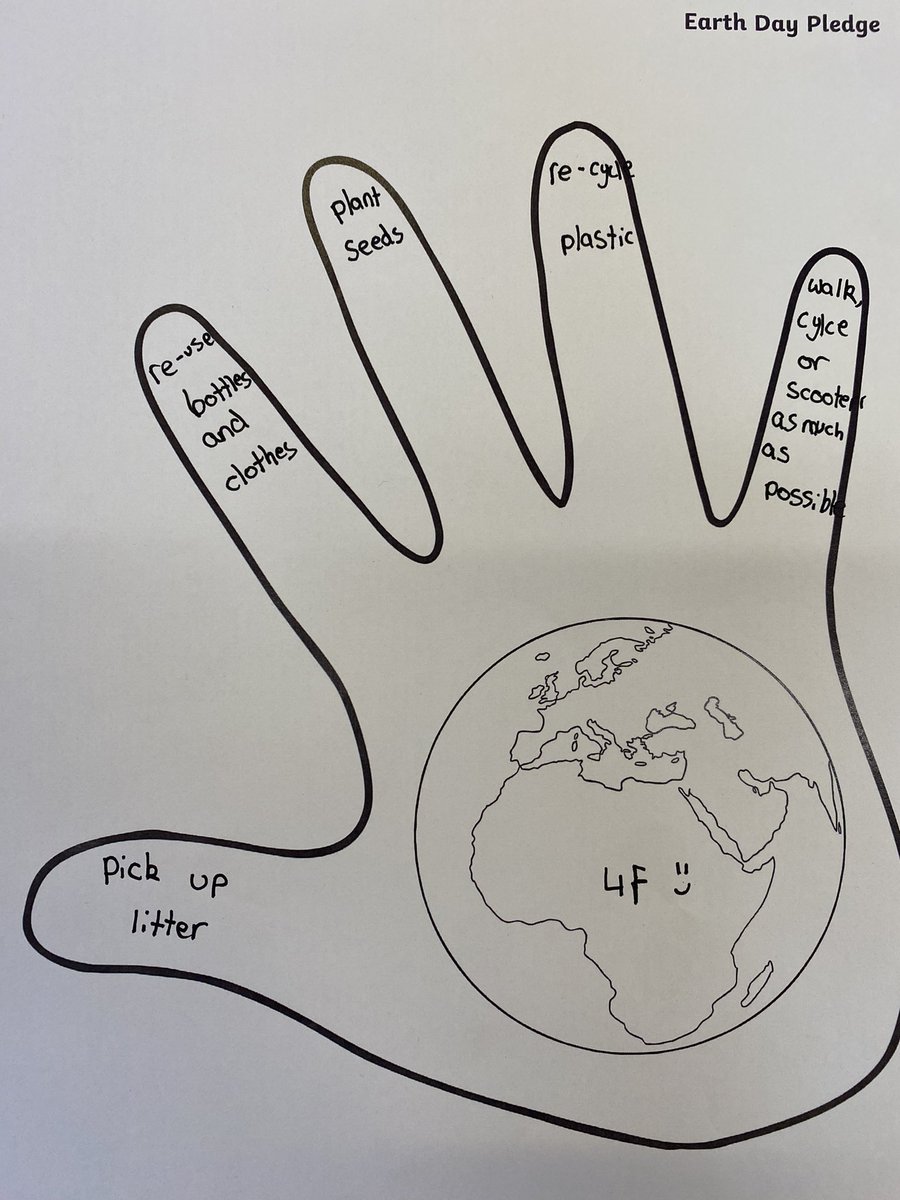 Earth Day Pledge
pick up
litter
re-use
bottles
and
clothes
plant
seeds
re-cycle
plastic
walk,
cylce
or
scooter
as much
as
possible
4F